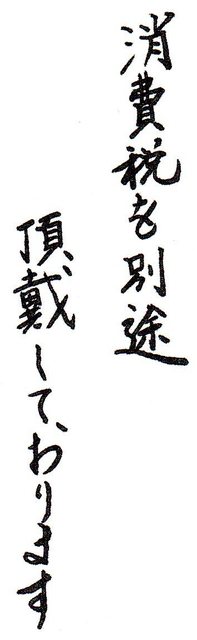 消費税を別途
頂戴しております